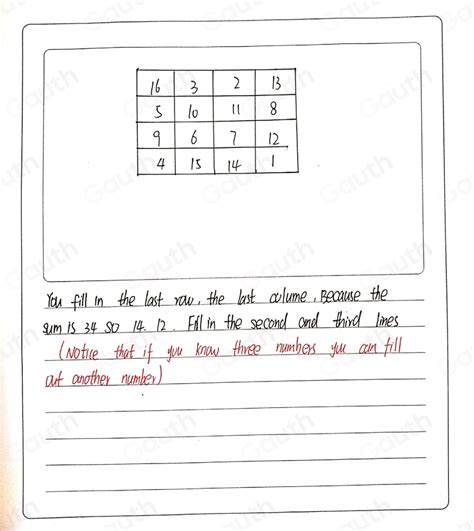 16 3 2 13
5 10 11 8
9 6 7 12
4 15 14 1
You fill in the last row, the last colume, Because the
sum is 34 so 14. 12. Fill in the second and third lines
(Notice that if you know three numbers you can fill
out another number)